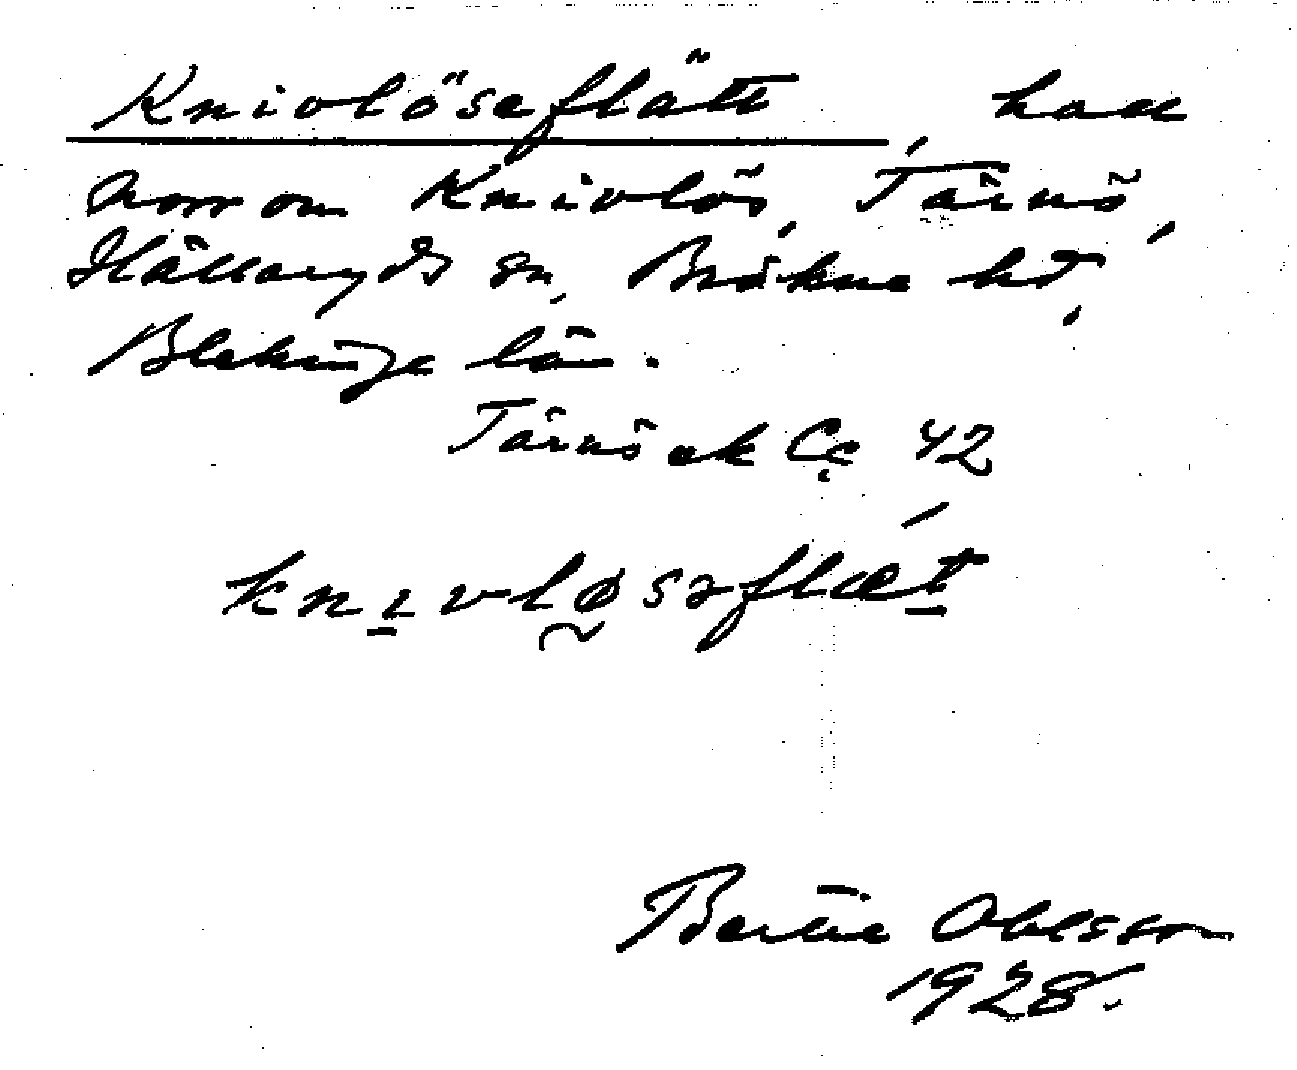 Knivlöseflätt, hall
norr om Knivlös, Tärnö,
Hällaryds sn, Bräkne hd,
Blekinge län.
Tärnö ek Cc 42
knɪvløsəflæt
Bertil Ohlsson
1928.